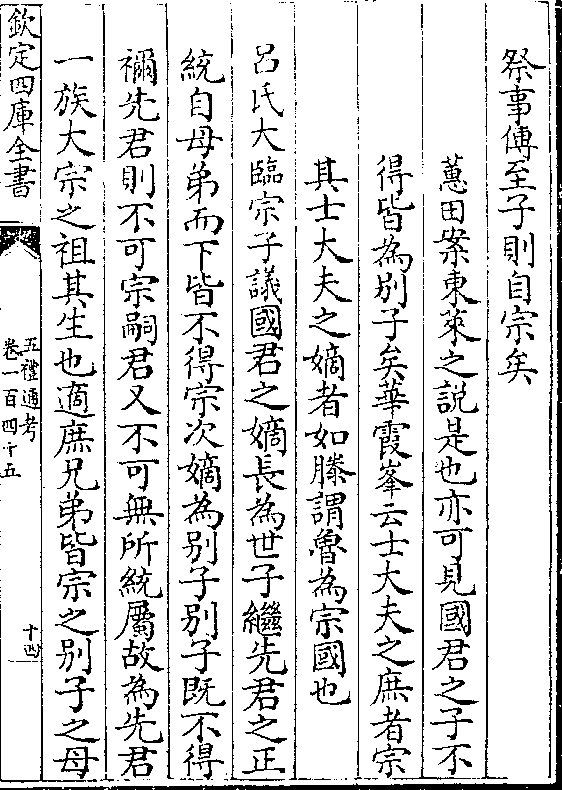 祭事傳至子則自宗矣
蕙田案東萊之説是也亦可見國君之子不
得皆為别子矣華霞峯云士大夫之庶者宗
其士大夫之嫡者如滕謂魯為宗國也
吕氏大臨宗子議國君之嫡長為世子繼先君之正
統自母弟而下皆不得宗次嫡為别子别子既不得
禰先君則不可宗嗣君又不可無所統屬故為先君
一族大宗之祖其生也適庶兄弟皆宗之别子之母
欽定四庫全書
五禮通考
卷一百四十五
十四